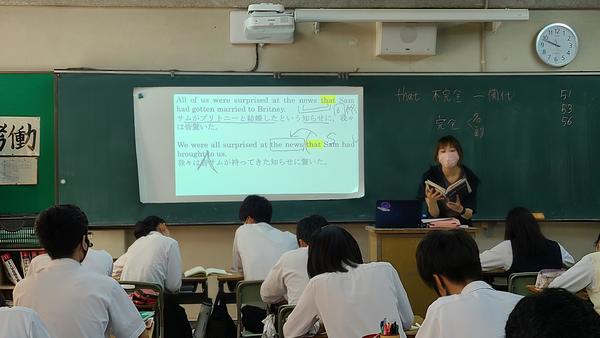 All of us were surprised at the news that Sam
had gotten married to Britney.
サムがブリトニーと結婚したという知らせに、我々
は皆驚いた。
We were all surprised at the news that Sam had
brought to us.
我々は皆サムが持ってきた知らせに驚いた。
that 不完全 ー 関代 51
53
完全 56
労働